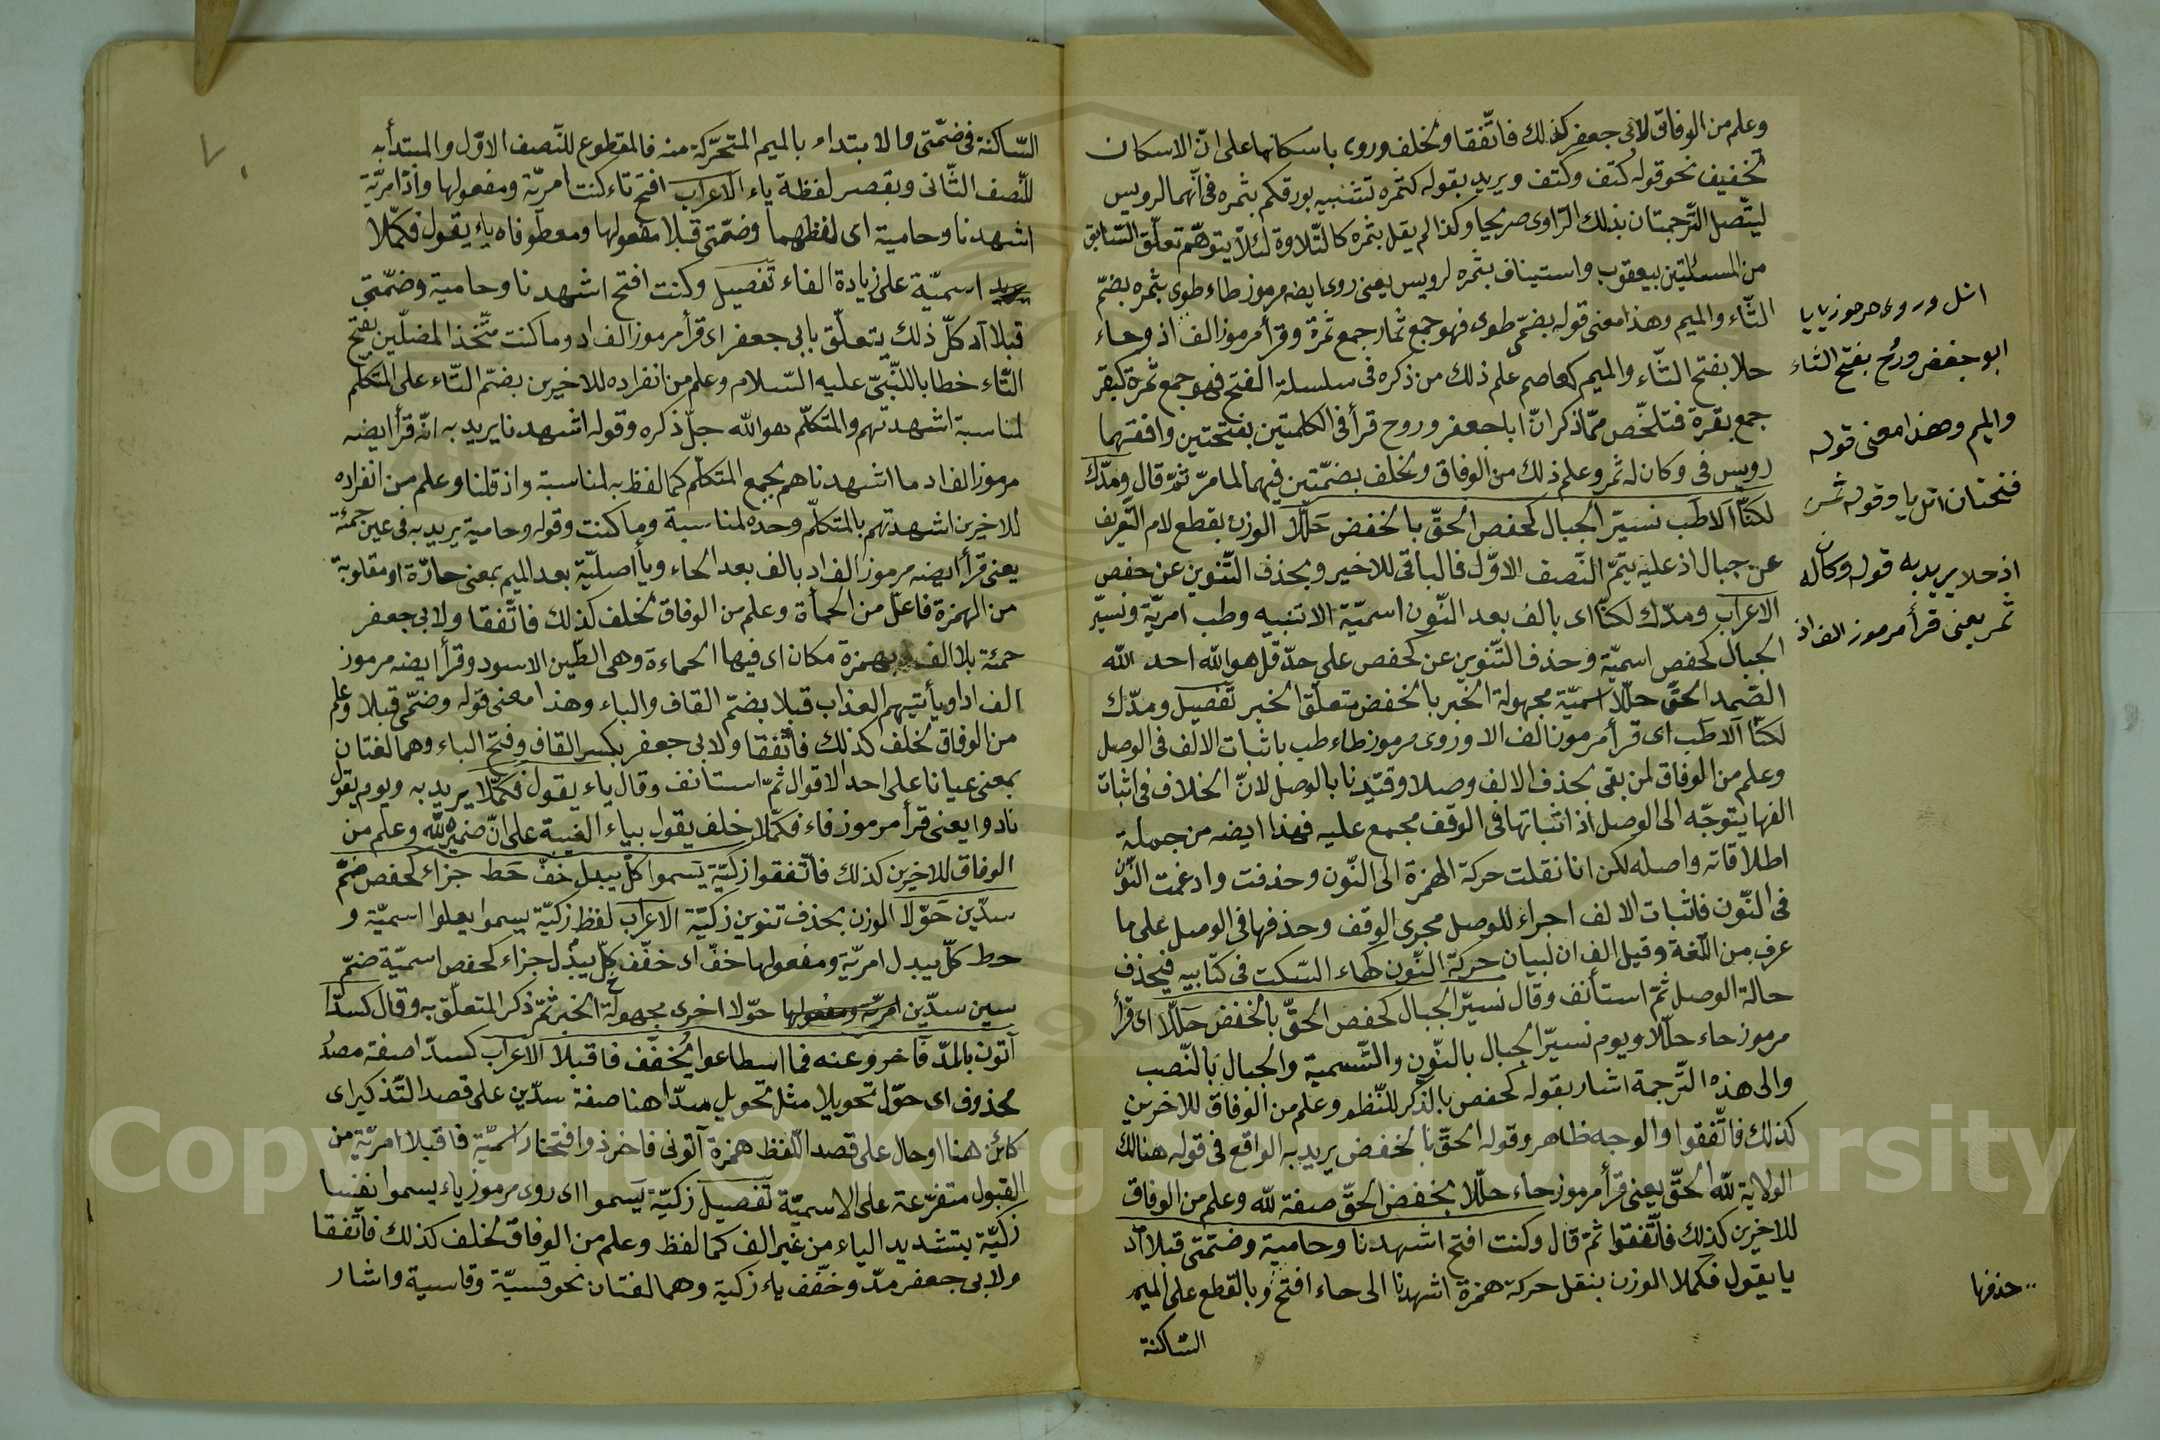 وعلم من الوفاق لابي جعفر كذلك فاتّفقا ولخلف وروى باسكانها على انّ الاسكان
تخفيف نحو قوله كتف وكتف ويريد بقوله كثمره تشبيه بورقكم بثمره في انّهما لرويس
ليتّصل التّرجمتان بذلك الرّاوى صريحا وكذا لم يقل بثمره كالتّلاوة لئلّا يتوهّم تعلّق السّابق
من المسئلتين بيعقوب واستيناف بثمره لرويس يعنى روى ايضه مرموز طاء طوى بثمره بضمّ
الثّاء والميم وهذا معنى قوله بضمّى طوى فهو جمع ثمار جمع ثمرة وقرأ مرموز الف اذ وحاء
حلا بفتح الثّاء والميم كعاصم علم ذلك من ذكره في سلسلة الفتح فهو جمع ثمرة كبقر
جمع بقرة فتلخّص ممّا ذكر انّ ابا جعفر وروح قرأ في الكلمتين بفتحتين وافقهما
رويس في وكان له ثمر وعلم ذلك من الوفاق ولخلف بضمّتين فيهما لما مرّ ثمّ قال ومدّك
لكنّا الا طب نسيّر الجبال كحفص الحقّ بالخفض حلّلا الوزن بقطع لام التّعريف
عن جبال اذ عليه يتمّ النّصف الاوّل فالباقى للاخير وبحذف التّنوين عن حفص
الاعراب ومدّك لكنّا اى بالف بعد النّون اسميّة الا تنبيه وطب امريّة ونسيّر
الجبال كحفص اسميّة وحذف التّنوين عن كحفص على حدّ قل هو الله احد الله
الصّمد الحقّ حلّلا اسميّة مجهولة الخبر بالخفض متعلّق الخبر تفصيل ومدّك
لكنّا الا طب اى قرأ مرموز الف الا وروى مرموز طاء طب باثبات الالف فى الوصل
وعلم من الوفاق لمن بقى بحذف الالف وصلا وقيّدنا بالوصل لانّ الخلاف فى اثبات
الفها يتوجّه الى الوصل اذ اثباتها فى الوقف مجمع عليه فهذا ايضه من جملة
اطلاقاته واصله لكن انا نقلت حركة الهمزة الى النّون وحذفت وادغمت النّون
فى النّون فاثبات الالف اجراء للوصل مجرى الوقف وحذفها فى الوصل على ما
عرف من اللّغة وقيل الف ان لبيان حركة النّون كهاء السّكت فى كتابيه فيحذف
حالة الوصل ثمّ استأنف وقال نسيّر الجبال كحفص الحقّ بالخفض حلّلا اى قرأ
مرموز حاء حلّلا ويوم نسيّر الجبال بالنّون والتّسمية والجبال بالنّصب
والى هذه التّرجمة اشار بقوله كحفص بالذّكر للنّظم وعلم من الوفاق للاخرين
كذلك فاتّفقوا والوجه ظاهر وقوله الحقّ بالخفض يريد به الواقع فى قوله هنالك
الولاية لله الحقّ يعنى قرأ مرموز حاء حلّلا بخفض الحقّ صفة لله وعلم من الوفاق
للاخرين كذلك فاتّفقوا ثمّ قال وكنت افتح اشهدنا وحامية وضمّتى قبلا اد
يا يقول فكمّلا الوزن بنقل حركة همزة اشهدنا الى حاء افتح وبالقطع على الميم
السّاكنة
اتل وروى مرموز يا يا
ابو جعفر وروح بفتح الثاء
والميم وهذا معنى قوله
فتحتان اتل يا وقوله ثمر
اذ حلا يريد به قوله وكان له
ثمر يعنى قرأ مرموز الف اذ
حذفها
السّاكنة فى ضمّتى والابتداء بالميم المتحرّكة منه فالمقطوع للنّصف الاوّل والمبتدأ به
للنّصف الثّانى وبقصر لفظة ياء الاعراب افتح تاء كنت امريّة ومفعولها واذ امريّة
اشهدنا وحامية اى لفظهما وضمّتى قبلا مفعولها ومعطوفاه ياء يقول فكمّلا
اسميّة على زيادة الفاء تفصيل وكنت افتح اشهدنا وحامية وضمّتي
قبلا اد كلّ ذلك يتعلّق بابى جعفر اى قرأ مرموز الف اد وما كنت متّخذ المضلّين بفتح
التّاء خطابا للنّبىّ عليه السّلام وعلم من انفراده للاخيرين بضمّ التّاء على المتكلّم
لمناسبة اشهدتهم والمتكلّم هو الله جلّ ذكره وقوله اشهدنا يريد به انّه قرأ ايضه
مرموز الف اد ما اشهدناهم بجمع المتكلّم كما لفظ به لمناسبة واذ قلنا وعلم من انفراده
للاخرين اشهدتهم بالمتكلّم وحده لمناسبة وما كنت وقوله وحامية يريد به فى عين حمئة
يعنى قرأ ايضه مرموز الف اد بالف بعد الحاء ويأ اصليّة بعد الميم بمعنى حارّة او مقلوبة
من الهمزة فاعل من الحمأة وعلم من الوفاق لخلف كذلك فاتّفقا ولابى جعفر
حمئة بلا الف بهمزة مكان اى فيها الحماءة وهى الطّين الاسود وقرأ ايضه مرموز
الف اد او يأتيهم العذاب قبلا بضمّ القاف والباء وهذا معنى قوله وضمّى قبلا وعلم
من الوفاق لخلف كذلك فاتّفقا ولابى جعفر بكسر القاف وفتح الباء وهما لغتان
بمعنى عيانا على احد الاقوال ثمّ استأنف وقال ياء يقول فكمّلا يريد به ويوم يقول
نادوا يعنى قرأ مرموز فاء فكمّلا خلف يقول بياء الغيبة على انّ ضميره لله وعلم من
الوفاق للاخرين كذلك فاتّفقوا زكيّة يسموا كلّ يبدل خفّ حط جزاء كحفص ضمّ
سدّين حوّلا الوزن بحذف تنوين زكيّة الاعراب لفظ زكيّة يسموا يعلوا اسميّة و
حط كلّ يبدل امريّة ومفعولها خفّ اى خفّف كلّ يبدل جزاء كحفص اسميّة ضمّ
سين سدّين حوّلا اخرى مجهولة الخبر ثمّ ذكر المتعلّق به وقال كسدّا
آتون بالمدّ فاخر وعنه فما اسطاعوا يخفّف فاقبلا الاعراب كسدّا صفة مصدر
محذوف اى حوّل تحويلا مثل تحويل سدّا هنا صفة سدّين على قصد التّذكير اى
كائن هنا او حال على قصد اللّفظ همزة آتونى فاخر ذو افتخار اسميّة فاقبلا امريّة من
القبول متفرّعة على الاسميّة تفصيل زكيّة يسموا اى روى مرموز ياء يسموا نفسا
زكيّة بتشديد الياء من غير الف كما لفظ وعلم من الوفاق لخلف كذلك فاتّفقا
ولابى جعفر مدّ وخفّف ياء زكية وهما لغتان نحو قسيّة وقاسية واشار
Copyright © King Saud University